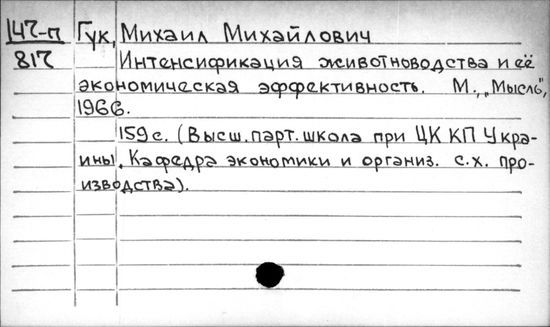 147-п Гук, Михаил Михайлович
817 Интенсификация животноводства и её
экономическая эффективность. М., „Мысль",
1966.
159 с. (Высш. парт. школа при ЦК КП Укра-
ины. Кафедра экономики и организ. с.х. про-
изводства).